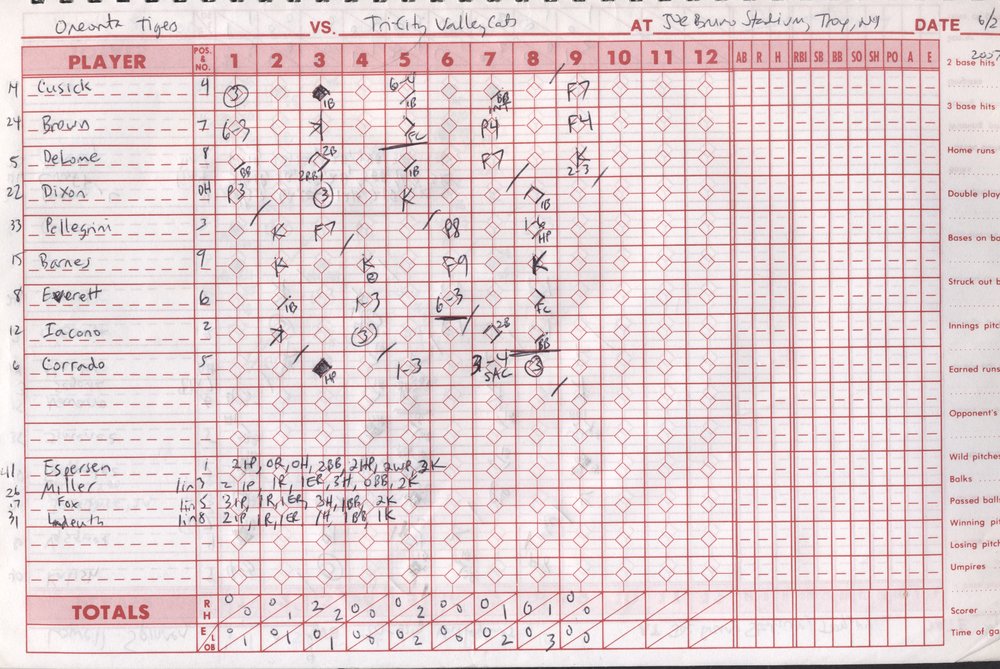 Oneonta Tigers VS. Tri-City ValleyCats AT Joe Bruno Stadium, Troy, NY DATE 6/2
2007
PLAYER POS. & NO. 1 2 3 4 5 6 7 8 9 10 11 12 AB R H RBI SB BB SO SH PO A E
2 base hits
14 Cusick 4 3 1B 6-4 1B BB INT F7
3 base hits
24 Brown 7 6-3 FC P4 F4
Home runs
5 DeLome 8 BB 2B 2RBI 1B F7 K 2-3
22 Dixon DH P3 3 K 1B
Double play
33 Pellegrini 3 K F7 P8 1-6 HP
Bases on ba
15 Barnes 9 K K F9 K
8 Everett 6 1B 1-3 6-3 FC
Struck out b
12 Iacono 2 K 3 2B BB
Innings pitc
6 Corrado 5 HP 1-3 3-4 SAC 3
Earned runs
Opponent's
41 Espersen 1 2IP, 0R, 0H, 2BB, 2HP, 2WP, 2K
Wild pitches
26 Miller lin 3 2IP, 1R, 1ER, 3H, 0BB, 2K
Balks
17 Fox lin 5 3IP, 1R, 1ER, 3H, 1BB, 2K
Passed balls
31 lin 8 2IP, 1R, 1ER, 1H, 1BB, 1K
Winning pit
Losing pitch
Umpires
TOTALS R H 0 0 0 1 2 2 0 0 0 2 0 0 0 1 0 1 0 0
Scorer
E LOB 0 1 0 1 0 1 0 0 0 2 0 0 0 2 0 3 0 0
Time of ga